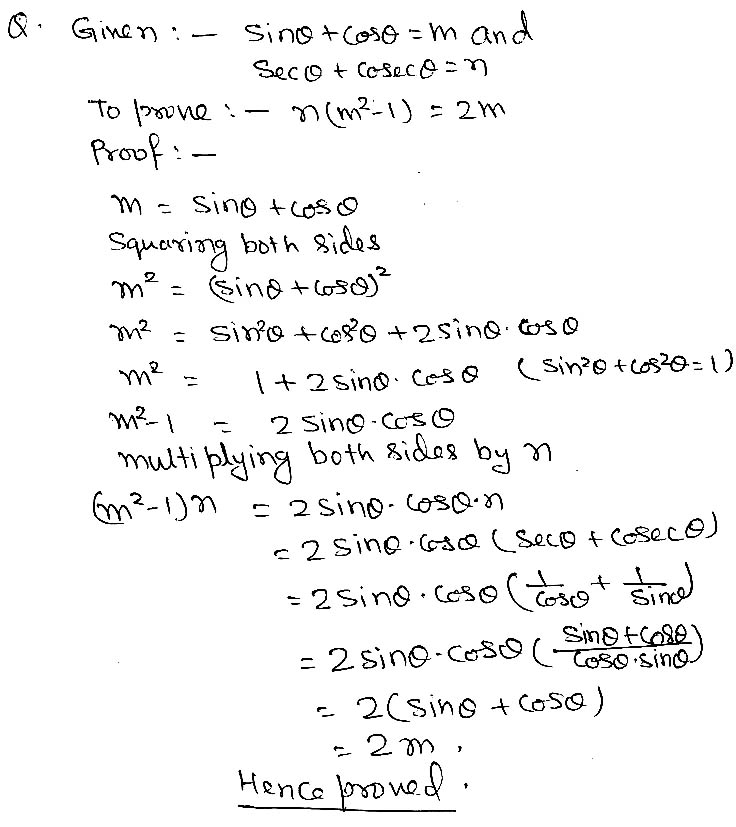 Q. Given :- sinθ + cosθ = m and
secθ + cosecθ = n
To prove :- n(m²-1) = 2m
Proof :-
m = sinθ + cosθ
Squaring both sides
m² = (sinθ + cosθ)²
m² = sin²θ + cos²θ + 2sinθ. cosθ
m² = 1 + 2sinθ. cosθ (sin²θ + cos²θ = 1)
m²-1 = 2 sinθ. cosθ
multiplying both sides by n
(m²-1)n = 2sinθ. cosθ.n
= 2 sinθ.cosθ (secθ + cosecθ)
= 2sinθ. cosθ (1/cosθ + 1/sinθ)
= 2sinθ.cosθ (sinθ + cosθ/cosθ.sinθ)
= 2(sinθ + cosθ)
= 2m.
Hence proved.